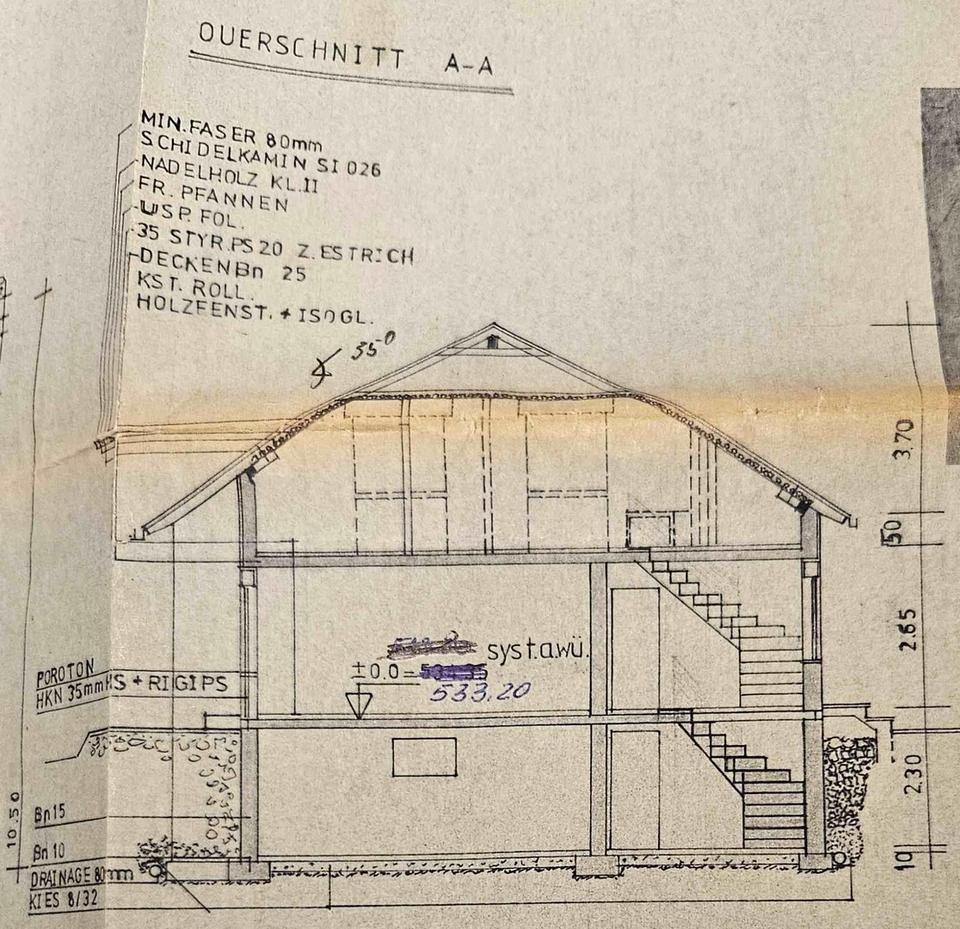 QUERSCHNITT A-A
MIN.FASER 80mm
SCHIDELKAMIN SI 026
NADELHOLZ KL.II
FR. PFANNEN
USP. FOL.
35 STYR.PS20 Z.ESTRICH
DECKENBn 25
KST. ROLL.
HOLZFENST. + ISOGL.
35°
3.70
50
2.65
syst.a.wü.
±0.0=
533.20
POROTON
HKN 35mm HS + RIGIPS
2.30
10.50
Bn15
Bn10
10
DRAINAGE 80mm
KIES 8/32